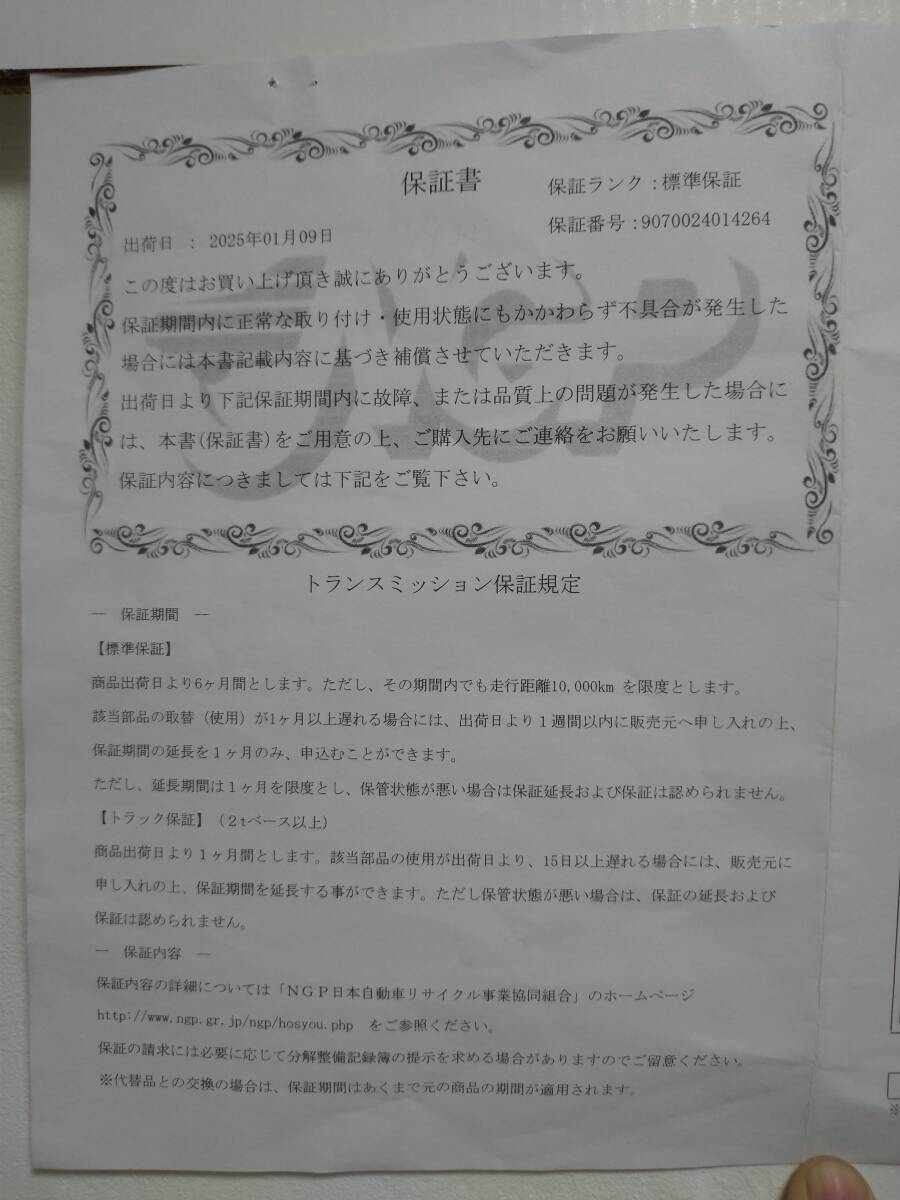 保証書
保証ランク：標準保証
保証番号：9070024014264
出荷日 ： 2025年01月09日
この度はお買い上げ頂き誠にありがとうございます。
保証期間内に正常な取り付け・使用状態にもかかわらず不具合が発生した
場合には本書記載内容に基づき補償させていただきます。
出荷日より下記保証期間内に故障、または品質上の問題が発生した場合に
は、本書(保証書)をご用意の上、ご購入先にご連絡をお願いいたします。
保証内容につきましては下記をご覧下さい。
NGP
トランスミッション保証規定
― 保証期間 ―
【標準保証】
商品出荷日より6ヶ月間とします。ただし、その期間内でも走行距離10,000km を限度とします。
該当部品の取替（使用）が1ヶ月以上遅れる場合には、出荷日より１週間以内に販売元へ申し入れの上、
保証期間の延長を１ヶ月のみ、申込むことができます。
ただし、延長期間は１ヶ月を限度とし、保管状態が悪い場合は保証延長および保証は認められません。
【トラック保証】（２tベース以上）
商品出荷日より１ヶ月間とします。該当部品の使用が出荷日より、15日以上遅れる場合には、販売元に
申し入れの上、保証期間を延長する事ができます。ただし保管状態が悪い場合は、保証の延長および
保証は認められません。
― 保証内容 ―
保証内容の詳細については「ＮＧＰ日本自動車リサイクル事業協同組合」のホームページ
http://www.ngp.gr.jp/ngp/hosyou.php をご参照ください。
保証の請求には必要に応じて分解整備記録簿の提示を求める場合がありますのでご留意ください。
※代替品との交換の場合は、保証期間はあくまで元の商品の期間が適用されます。
※